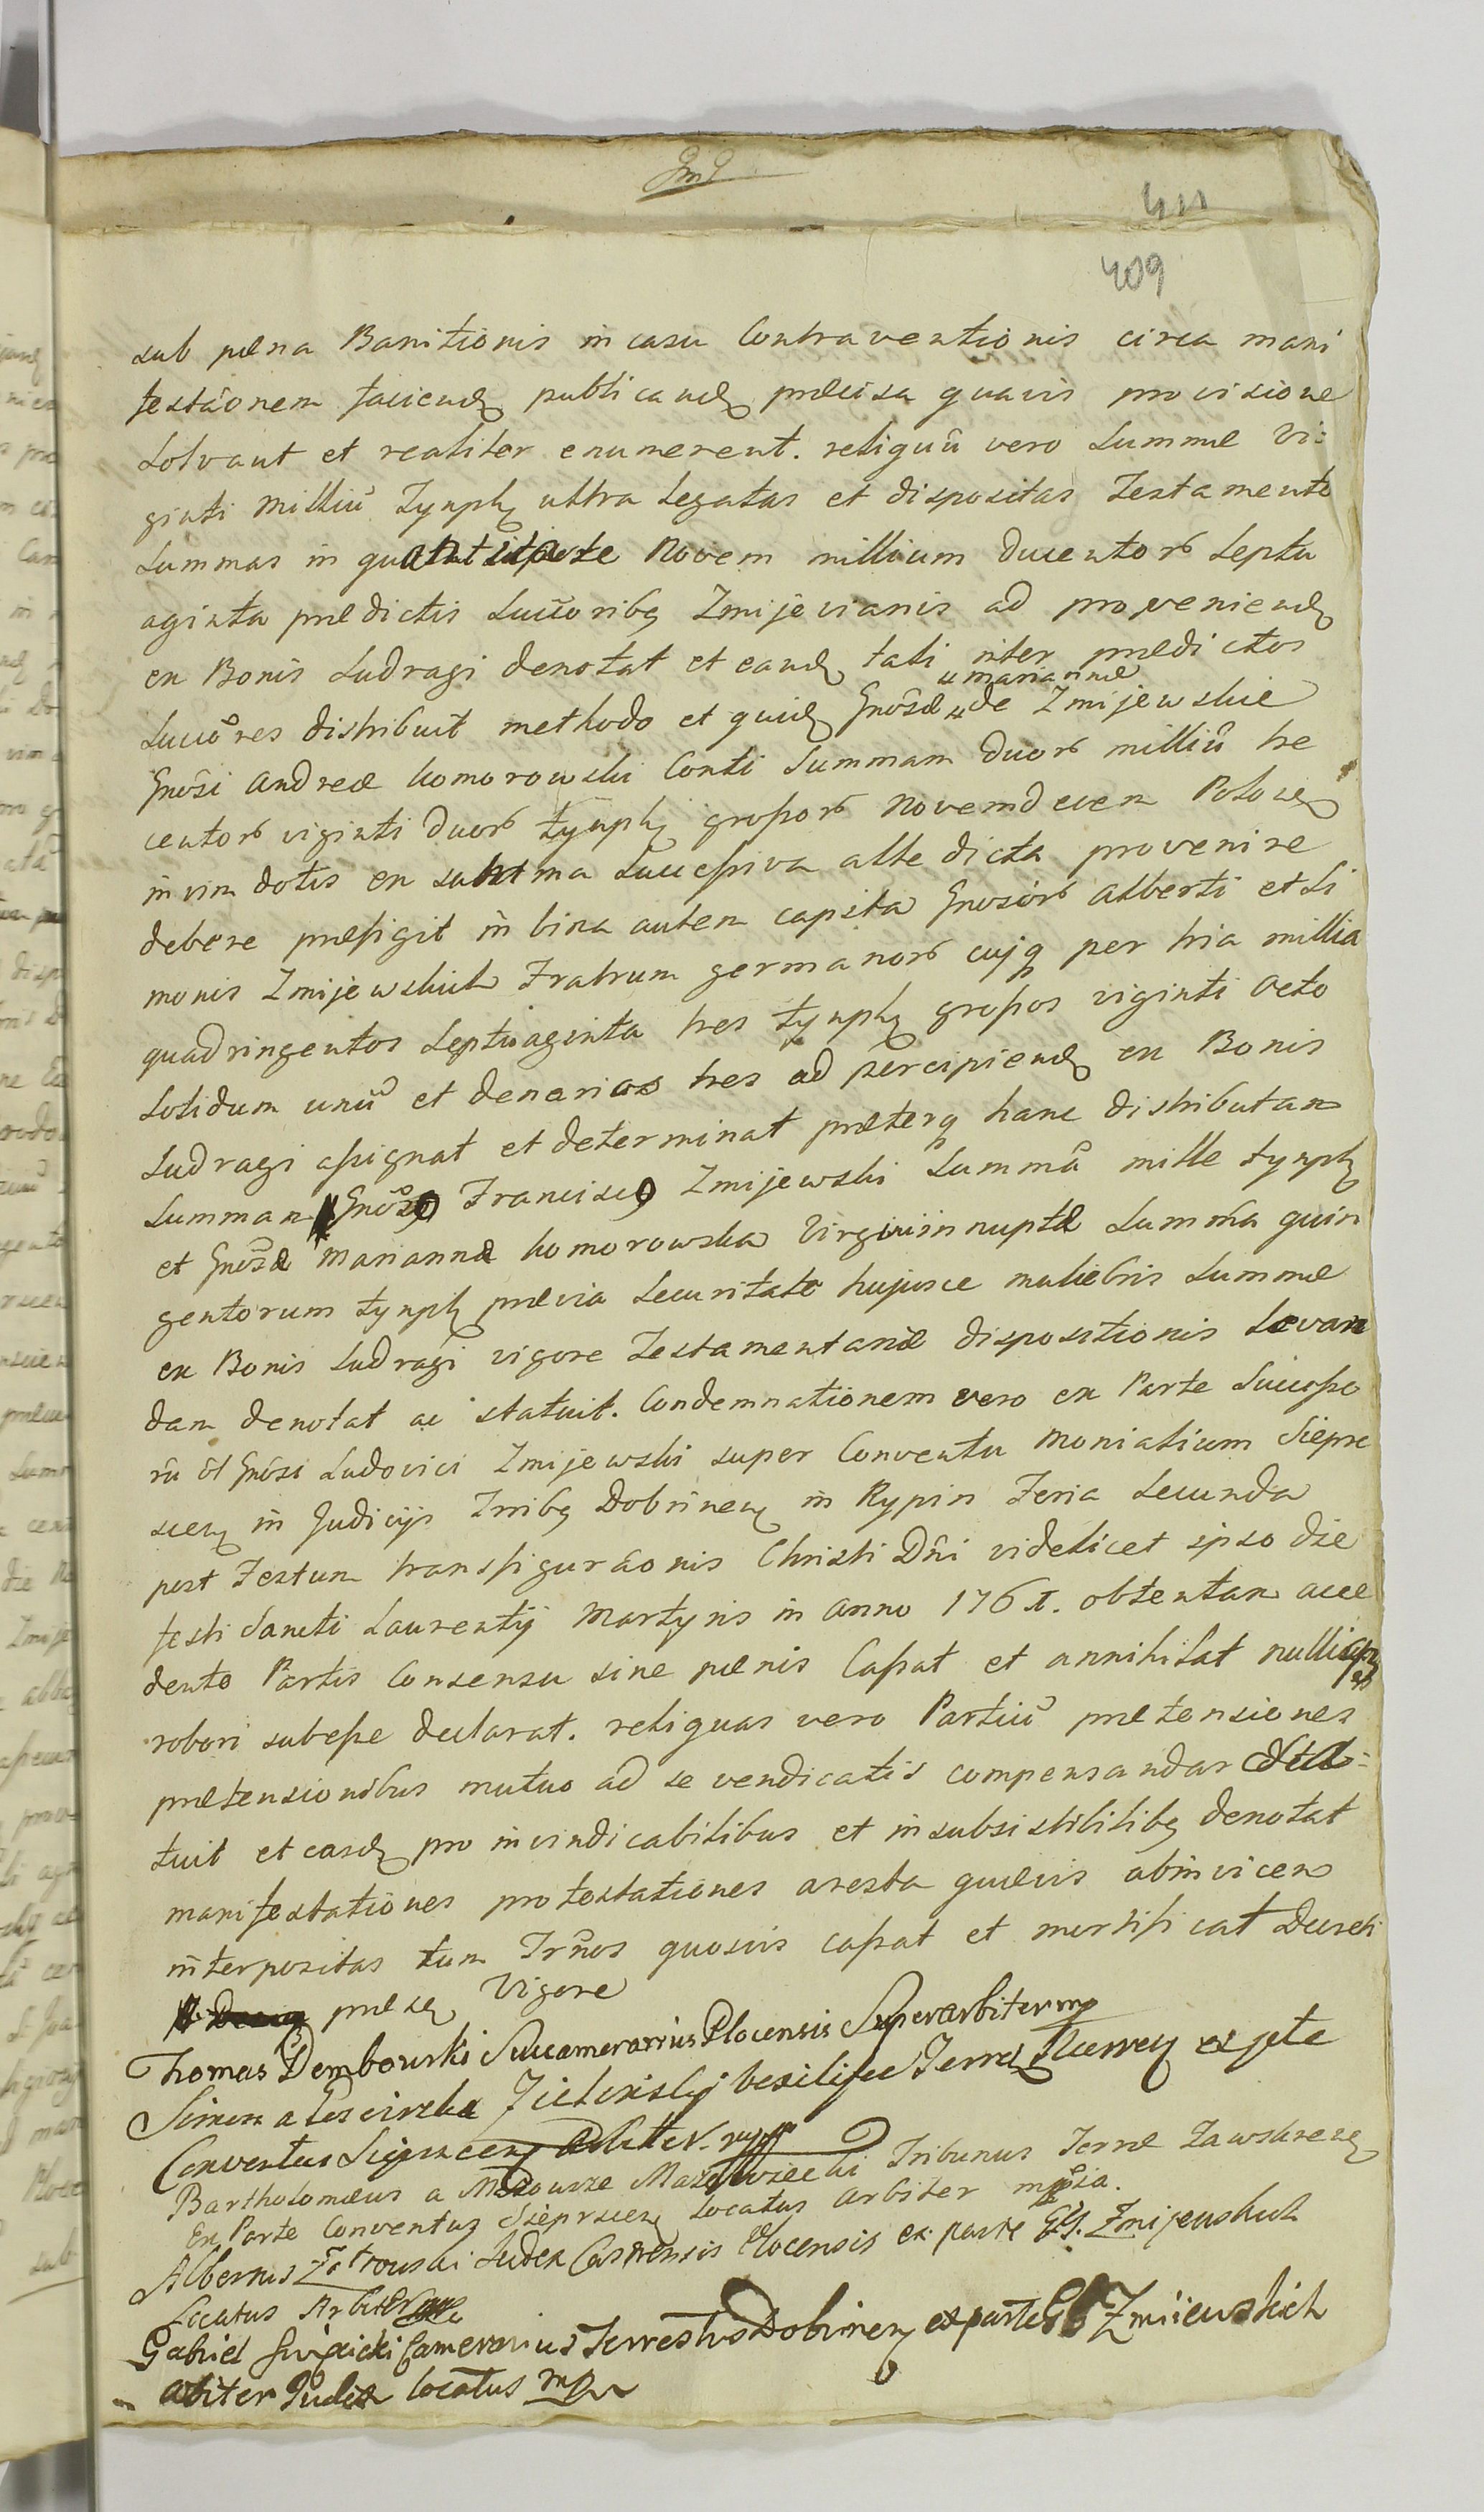 411
409
sub pæna Banitionis in casu Contraventionis circa mani
festãonem faciendę publicandę præcisa quavis provisione
Solvant et realiter enumerent. reliquũ vero Summæ Vi:
ginti Milliũ Tynph ultra Legatas et dispositas Testamento
Summas in quantitate Novem millium ducentorũ Septu
aginta prædictis Succoribꝫ Zmijevianis ad proveniendę
ex Bonis Sudragi denotat et eandę tali inter prædictos
Succõres distribuit methodo et quidę Gnõsæ de Zmijewskie
Mariannæ
Gnõsi Andreæ Komorowski Conti Summam duorũ milliũ tre
centorũ viginti duorũ tynph grossorũ Novemdecem Polonę
in vim dotis ex summa Successiva alte dicta provenire
debere præfigit in bina autem capita Gnosorũ Alberti et Si
monis Zmijewskich Fratrum germanorũ cujꝗ per tria millia
quadringentos Septuaginta tres tynph grossos viginti octo
Solidum unũ et denarios tres ad percipiendę ex Bonis
Sudragi assignat et determinat præterꝗ hanc distributam
Summam Gnõso Francisco Zmijewski Summã mille tynph
et Gnõsæ Mariannæ Komorowska Virgini innuptæ Summã quin
gentorum tynph prævia Securitate hujusce muliebris Summæ
ex Bonis Sudragi vigore Testamentariæ dispositionis Levan
dam denotat ac statuit. Condemnationem vero ex Parte Successo
rũ ôl Gnõsi Ludovici Zmijewski super Conventu Monialium Sieprc
scenꝫ in Judicijs Trribꝫ Dobrinenꝫ in Rypin Feria Secunda
post Festum transfigurãonis Christi Dñi videlicet ipso die
festi Sancti Laurentij Martyris in Anno 1761. obtentam acce
dente Partis Consensu sine pænis Cassat et annihilat nulliqꝫ
robori subesse declarat. reliquas vero Partiũ prætensiones
prætensionibus mutuo ad se vendicatis compensandas sta=
tuit et easdę pro invindicabilibus et insubsistibilibꝫ denotat
manifestationes protestationes aresta quævis abinvicem
interpositas tum Trños quosvis cassat et mortificat Decreti
præsenꝫ Vigore
Thomas Dembowski Succamerarius Plocensis Superarbiter mp
Simon a Zieliniski Vexilifer Terræ ex pte
Conventus Sieprcenꝫ Arbiter. mpp
Bartholomæus a Mazowsze Mazowiecki Tribunus Terræ Zawskrenꝫ
Ex Parte Conventus Sieprscenꝫ Locatus Arbiter mp̃ia.
Albertus Judex Castrensis Plocensis ex parte GG. Zmijewskich
Locatus Arbiter mp
Gabriel Camerarius Terrestris Dobrinenꝫ ex parte GG Zmiiewskich
arbiter Judex locatus mp